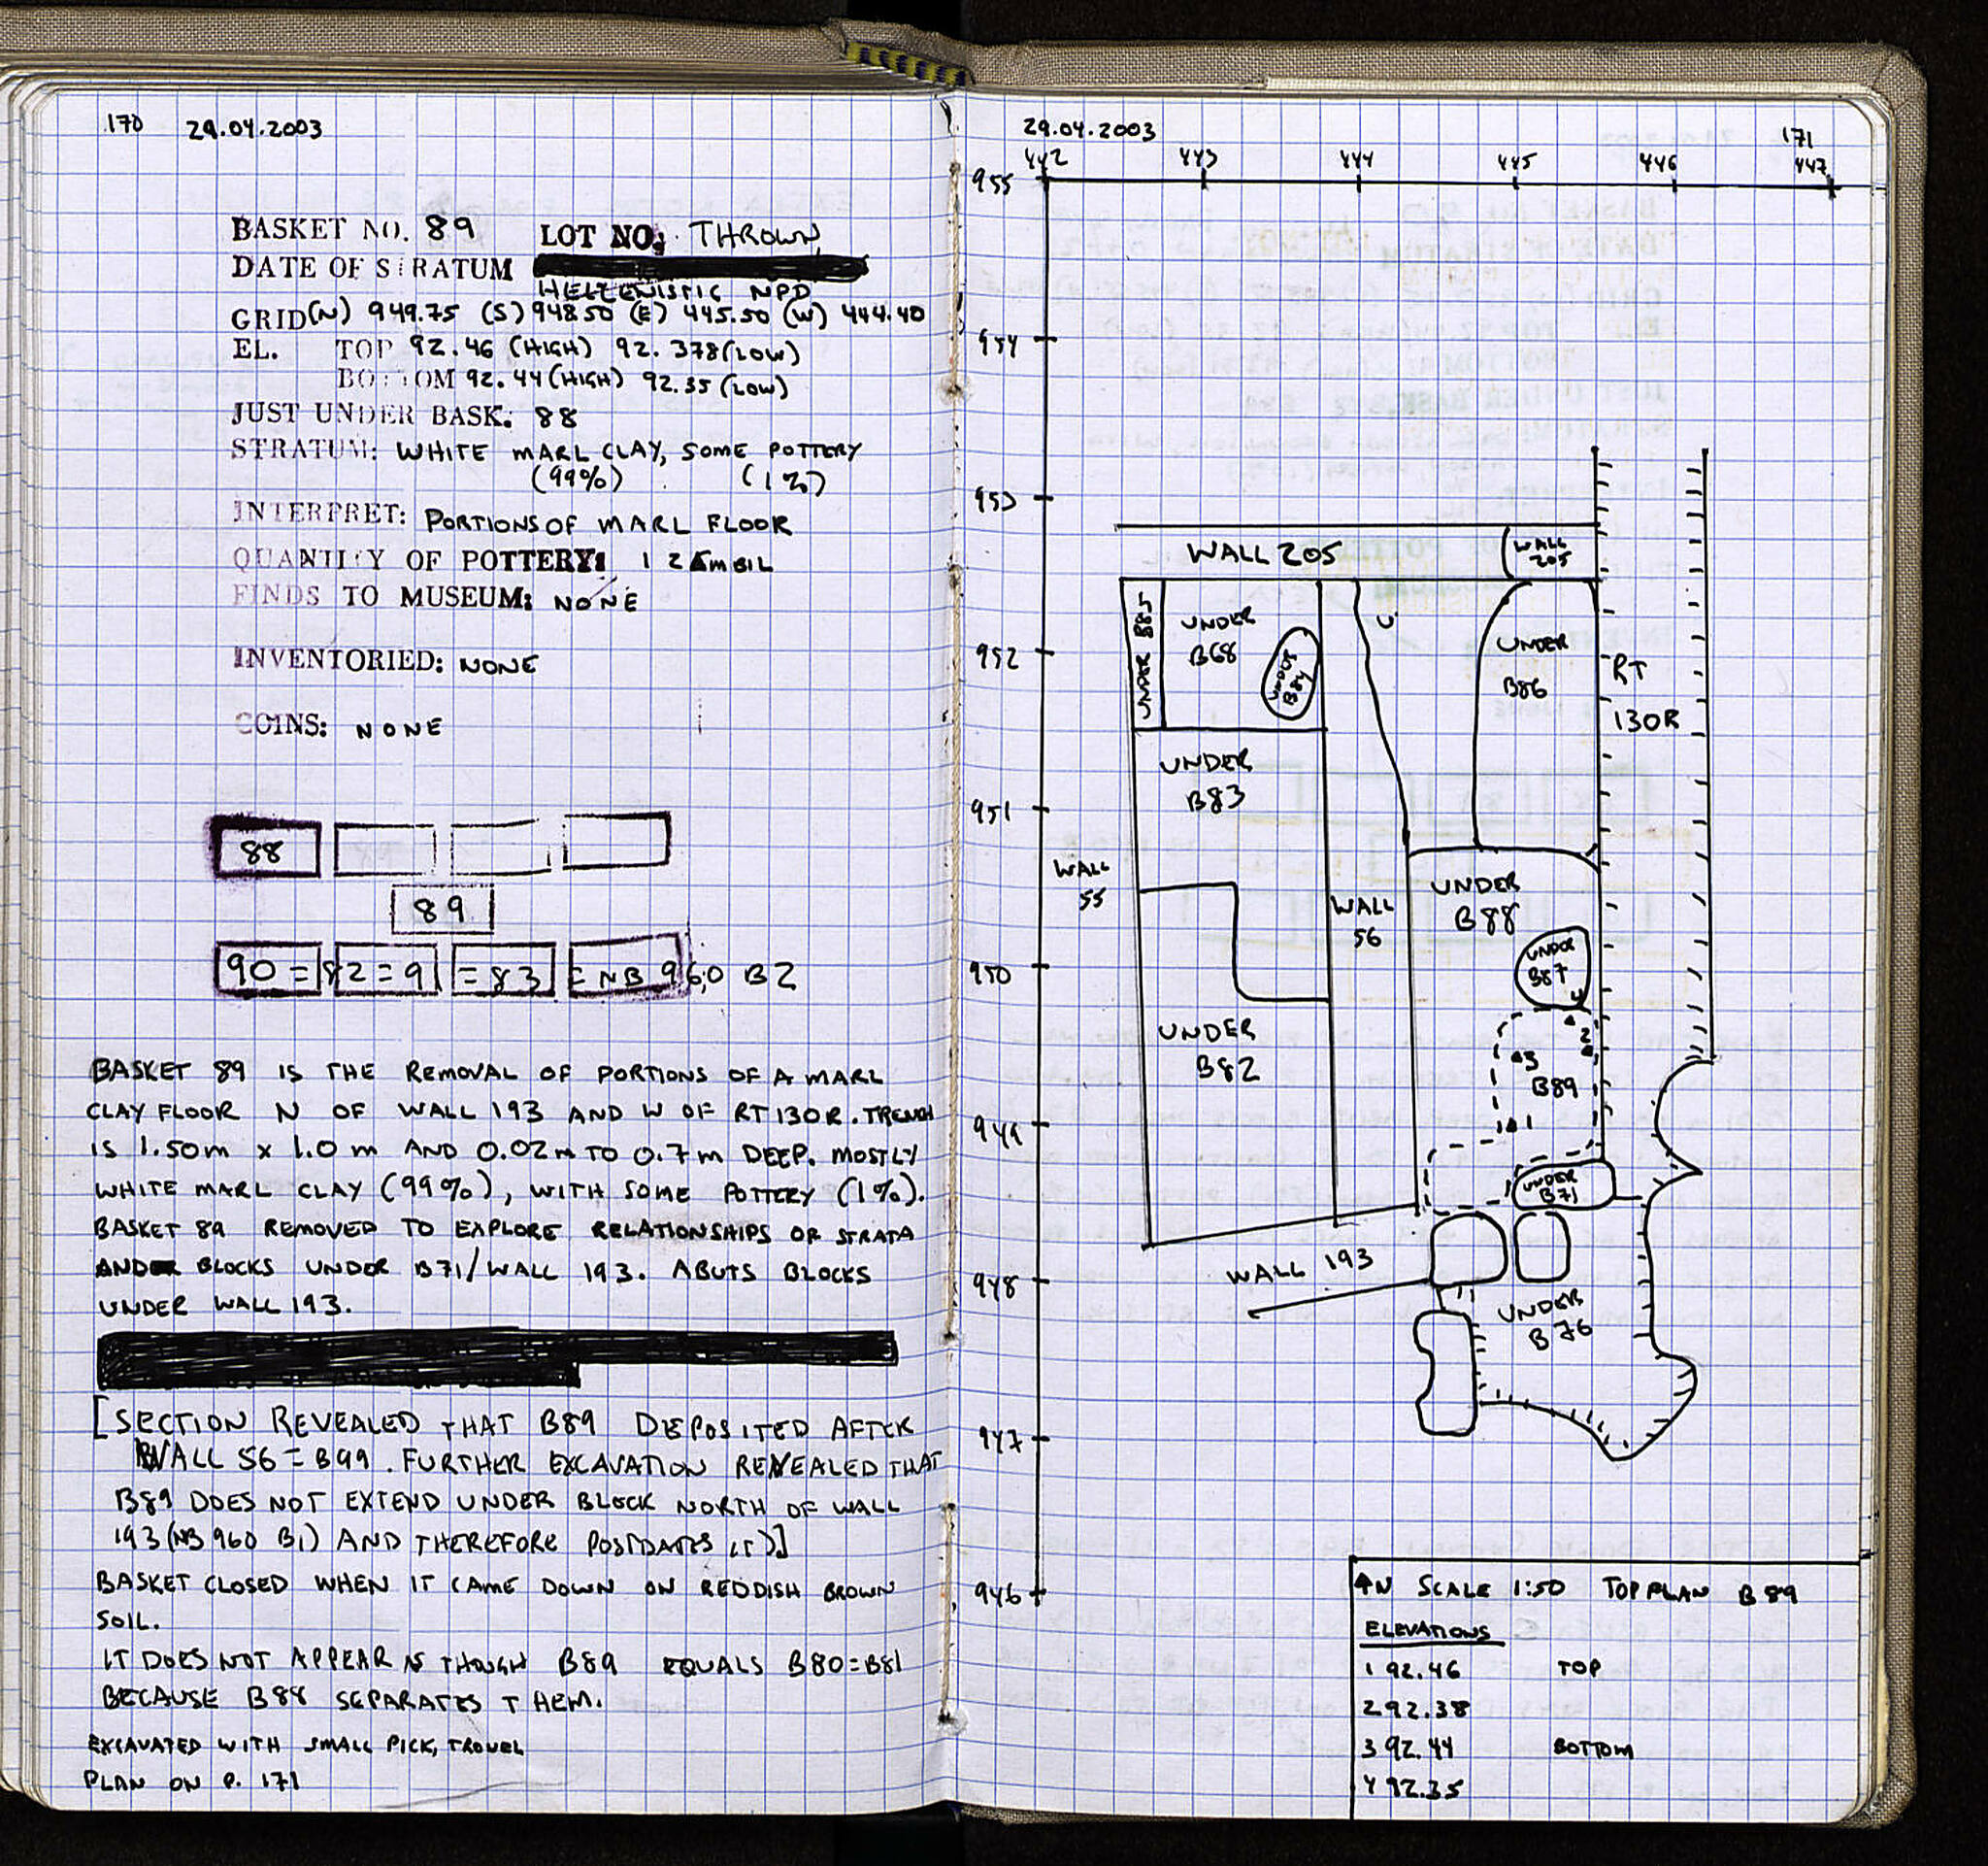 170 29.04.2003
BASKET NO. 89 LOT NO: THROWN
DATE OF STRATUM
HELLENISTIC NPD
GRID (N) 949.75 (S) 948.50 (E) 445.50 (W) 444.40
EL. TOP 92.46 (HIGH) 92.378 (LOW)
BOTTOM 92.44 (HIGH) 92.35 (LOW)
JUST UNDER BASK: 88
STRATUM: WHITE MARL CLAY, SOME POTTERY
(99%) (1%)
INTERPRET: PORTIONS OF MARL FLOOR
QUANTITY OF POTTERY: 1
FINDS TO MUSEUM: NONE
INVENTORIED: NONE
COINS: NONE
88
89
90 = 82 = 91 = 83 = NB 960 B2
BASKET 89 IS THE REMOVAL OF PORTIONS OF A MARL
CLAY FLOOR N OF WALL 193 AND W OF RT 130R. TRENCH
IS 1.50m x 1.0m AND 0.02m TO 0.7m DEEP. MOSTLY
WHITE MARL CLAY (99%), WITH SOME POTTERY (1%).
BASKET 89 REMOVED TO EXPLORE RELATIONSHIPS OF STRATA
AND BLOCKS UNDER B71/WALL 193. ABUTS BLOCKS
UNDER WALL 193.
[SECTION REVEALED THAT B89 DEPOSITED AFTER
WALL 56 = B99. FURTHER EXCAVATION REVEALED THAT
B89 DOES NOT EXTEND UNDER BLOCK NORTH OF WALL
193 (NB 960 B1) AND THEREFORE POSTDATES IT)]
BASKET CLOSED WHEN IT CAME DOWN ON REDDISH BROWN
SOIL.
IT DOES NOT APPEAR AS THOUGH B89 EQUALS B80=B81
BECAUSE B88 SEPARATES THEM.
EXCAVATED WITH SMALL PICK, TROWEL
PLAN ON P. 171
29.04.2003 171
442 443 444 445 446 447
955
954
953
WALL 205 WALL 205
UNDER B85
UNDER B68
UNDER B84
U
UNDER B86
952
RT 130R
UNDER B83
951
WALL 55
WALL 56
UNDER B88
UNDER B87
950
UNDER B82
4
2
3
B89
1
949
UNDER B71
WALL 193
948
UNDER B76
947
946
N SCALE 1:50 TOP PLAN B89
ELEVATIONS
1 92.46 TOP
2 92.38
3 92.44 BOTTOM
4 92.35